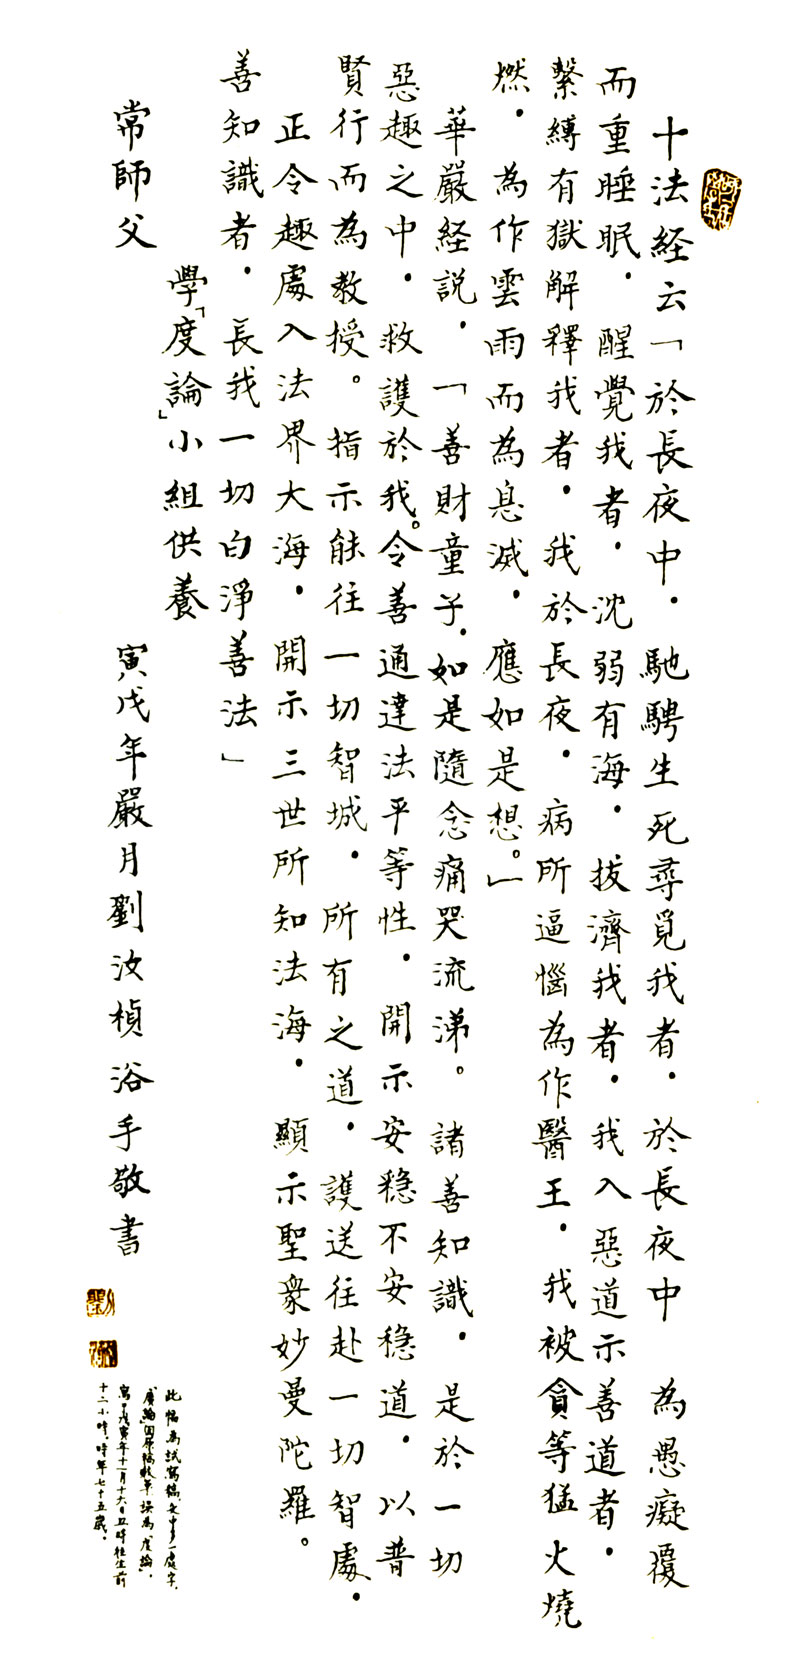 十法経云「於長夜中．馳騁生死尋覓我者．於長夜中 為愚癡覆
而重睡眠．醒覺我者．沈弱有海．拔濟我者．我入惡道示善道者．
繫縛有獄解釋我者．我於長夜．病所逼惱為作醫王．我被貪等猛火燒
燃．為作雲雨而為息滅．應如是想。」
華嚴経説．「善財童子．如是隨念痛哭流涕。諸善知識．是於一切
惡趣之中．救護於我。令善通達法平等性．開示安穏不安穏道．以普
賢行而為教授。指示能往一切智城．所有之道．護送往赴一切智處．
正令趣處入法界大海．開示三世所知法海．顯示聖衆妙曼陀羅。
善知識者．長我一切白淨善法」
學「度論」小組供養
常師父
寅戊年嚴月劉汝楨浴手敬書
此幅為試寫稿，文中多一處字，
「廣論」因原稿較草，誤為「度論」，
寫於戊寅年十一月十六日丑時往生前
十二小時，時年七十五歲．